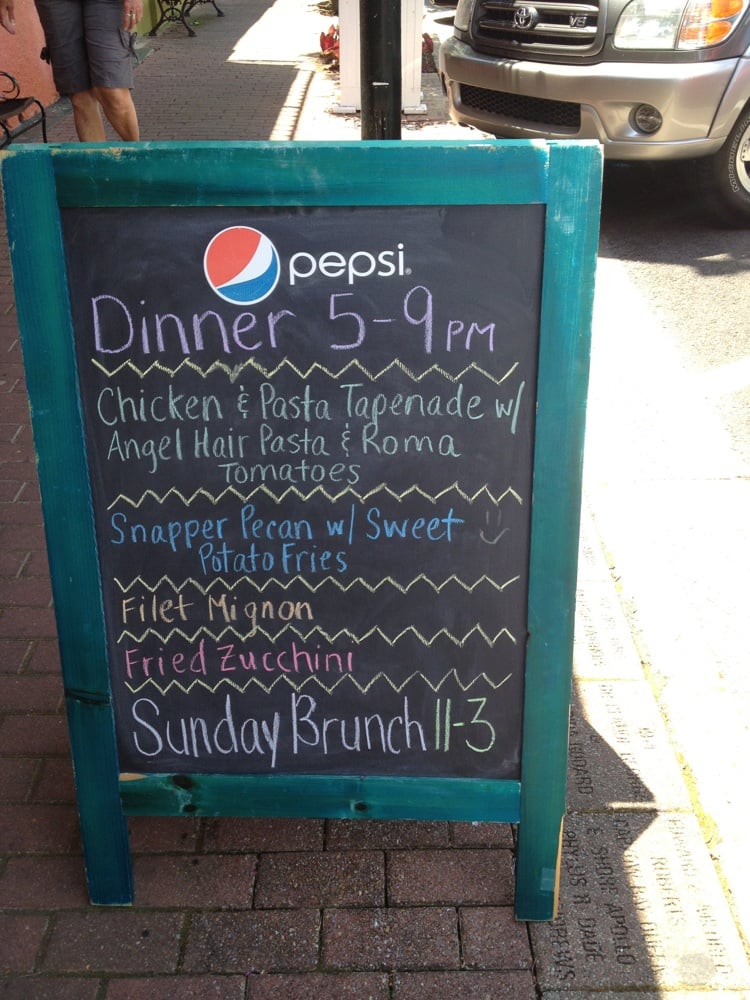 pepsi
Dinner 5-9 PM
Chicken & Pasta Tapenade w/
Angel Hair Pasta & Roma
Tomatoes
Snapper Pecan w/ Sweet
Potato Fries
Filet Mignon
Fried Zucchini
Sunday Brunch 11-3
V8